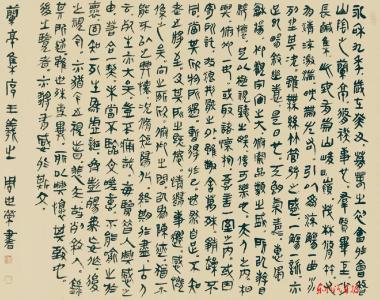 永和九年歲在癸丑暮春之初會于會稽
山陰之蘭亭脩禊事也群賢畢至少
長咸集此地有崇山峻領茂林脩竹又
有清流激湍映帶左右引以為流觴曲水
列坐其次雖無絲竹管弦之盛一觴一詠亦
足以暢敘幽情是日也天朗氣清惠風
和暢仰觀宇宙之大俯察品類之盛所以遊目
騁懷足以極視聽之娛信可樂也夫人之相
與俯仰一世或取諸懷抱悟言一室之內或因
寄所託放浪形骸之外雖趣舍萬殊靜躁不
同當其欣於所遇暫得於己快然自足不知
老之將至及其所之既倦情隨事遷感慨
係之矣向之所欣俯仰之間以為陳跡猶不
能不以之興懷況脩短隨化終期於盡古人
云死生亦大矣豈不痛哉每覽昔人興感之
由若合一契未嘗不臨文嗟悼不能喻之於
懷固知一死生為虛誕齊彭殤為妄作後
之視今亦猶今之視昔悲夫故列敘時人錄
其所述雖世殊事異所以興懷其致一也
後之覽者亦將有感於斯文
蘭亭集序王羲之 周世榮書